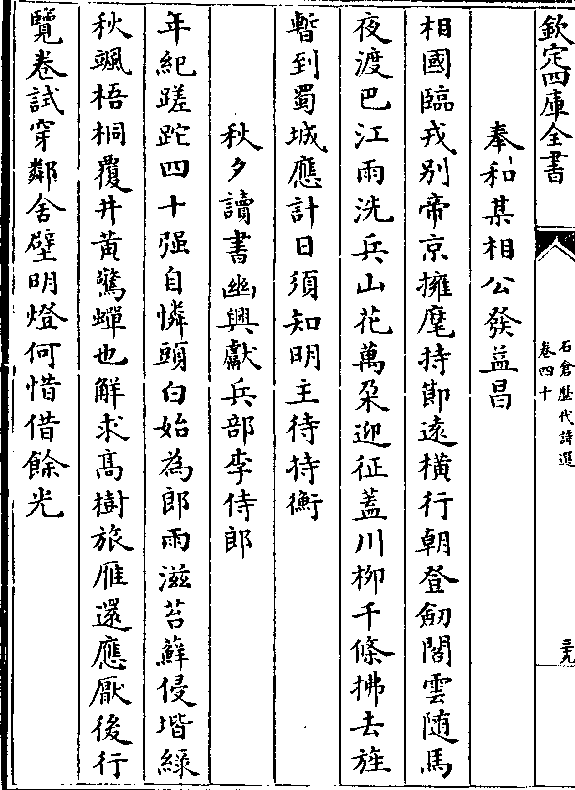 欽定四庫全書
石倉歷代詩選
卷四十
三九
奉和某相公發益昌
相國臨戎别帝京擁麾持節遠橫行朝登劒閣雲随馬
夜渡巴江雨洗兵山花萬朶迎征蓋川栁千條拂去旌
暫到蜀城應計日須知明主待持衡
秋夕讀書幽興獻兵部李侍郎
年紀蹉跎四十强自憐頭白始為郎雨滋苔蘚侵堦綠
秋颯梧桐覆井黄驚蟬也解求髙樹旅雁還應厭後行
覽卷試穿鄰舍壁明燈何惜借餘光